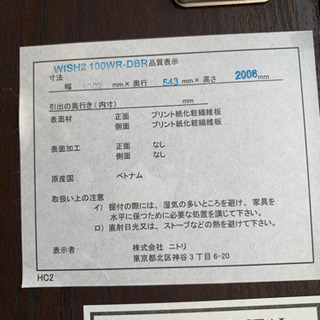 WISH2 100WR-DBR品質表示
寸法
幅 1002 mm×奥行 543 mm×高さ 2006mm
引出の奥行き（内寸） mm
表面材 正面 プリント紙化粧繊維板
側面 プリント紙化粧繊維板
表面加工 正面 なし
側面 なし
原産国 ベトナム
取扱い上の注意
イ）据付の際には、湿気の多いところを避け、家具を
水平に保つために必要な処置を講じて下さい。
ロ）直射日光又は、ストーブなどの熱を避けて下さい。
表示者 株式会社 ニトリ
東京都北区神谷３丁目6-20
HC2